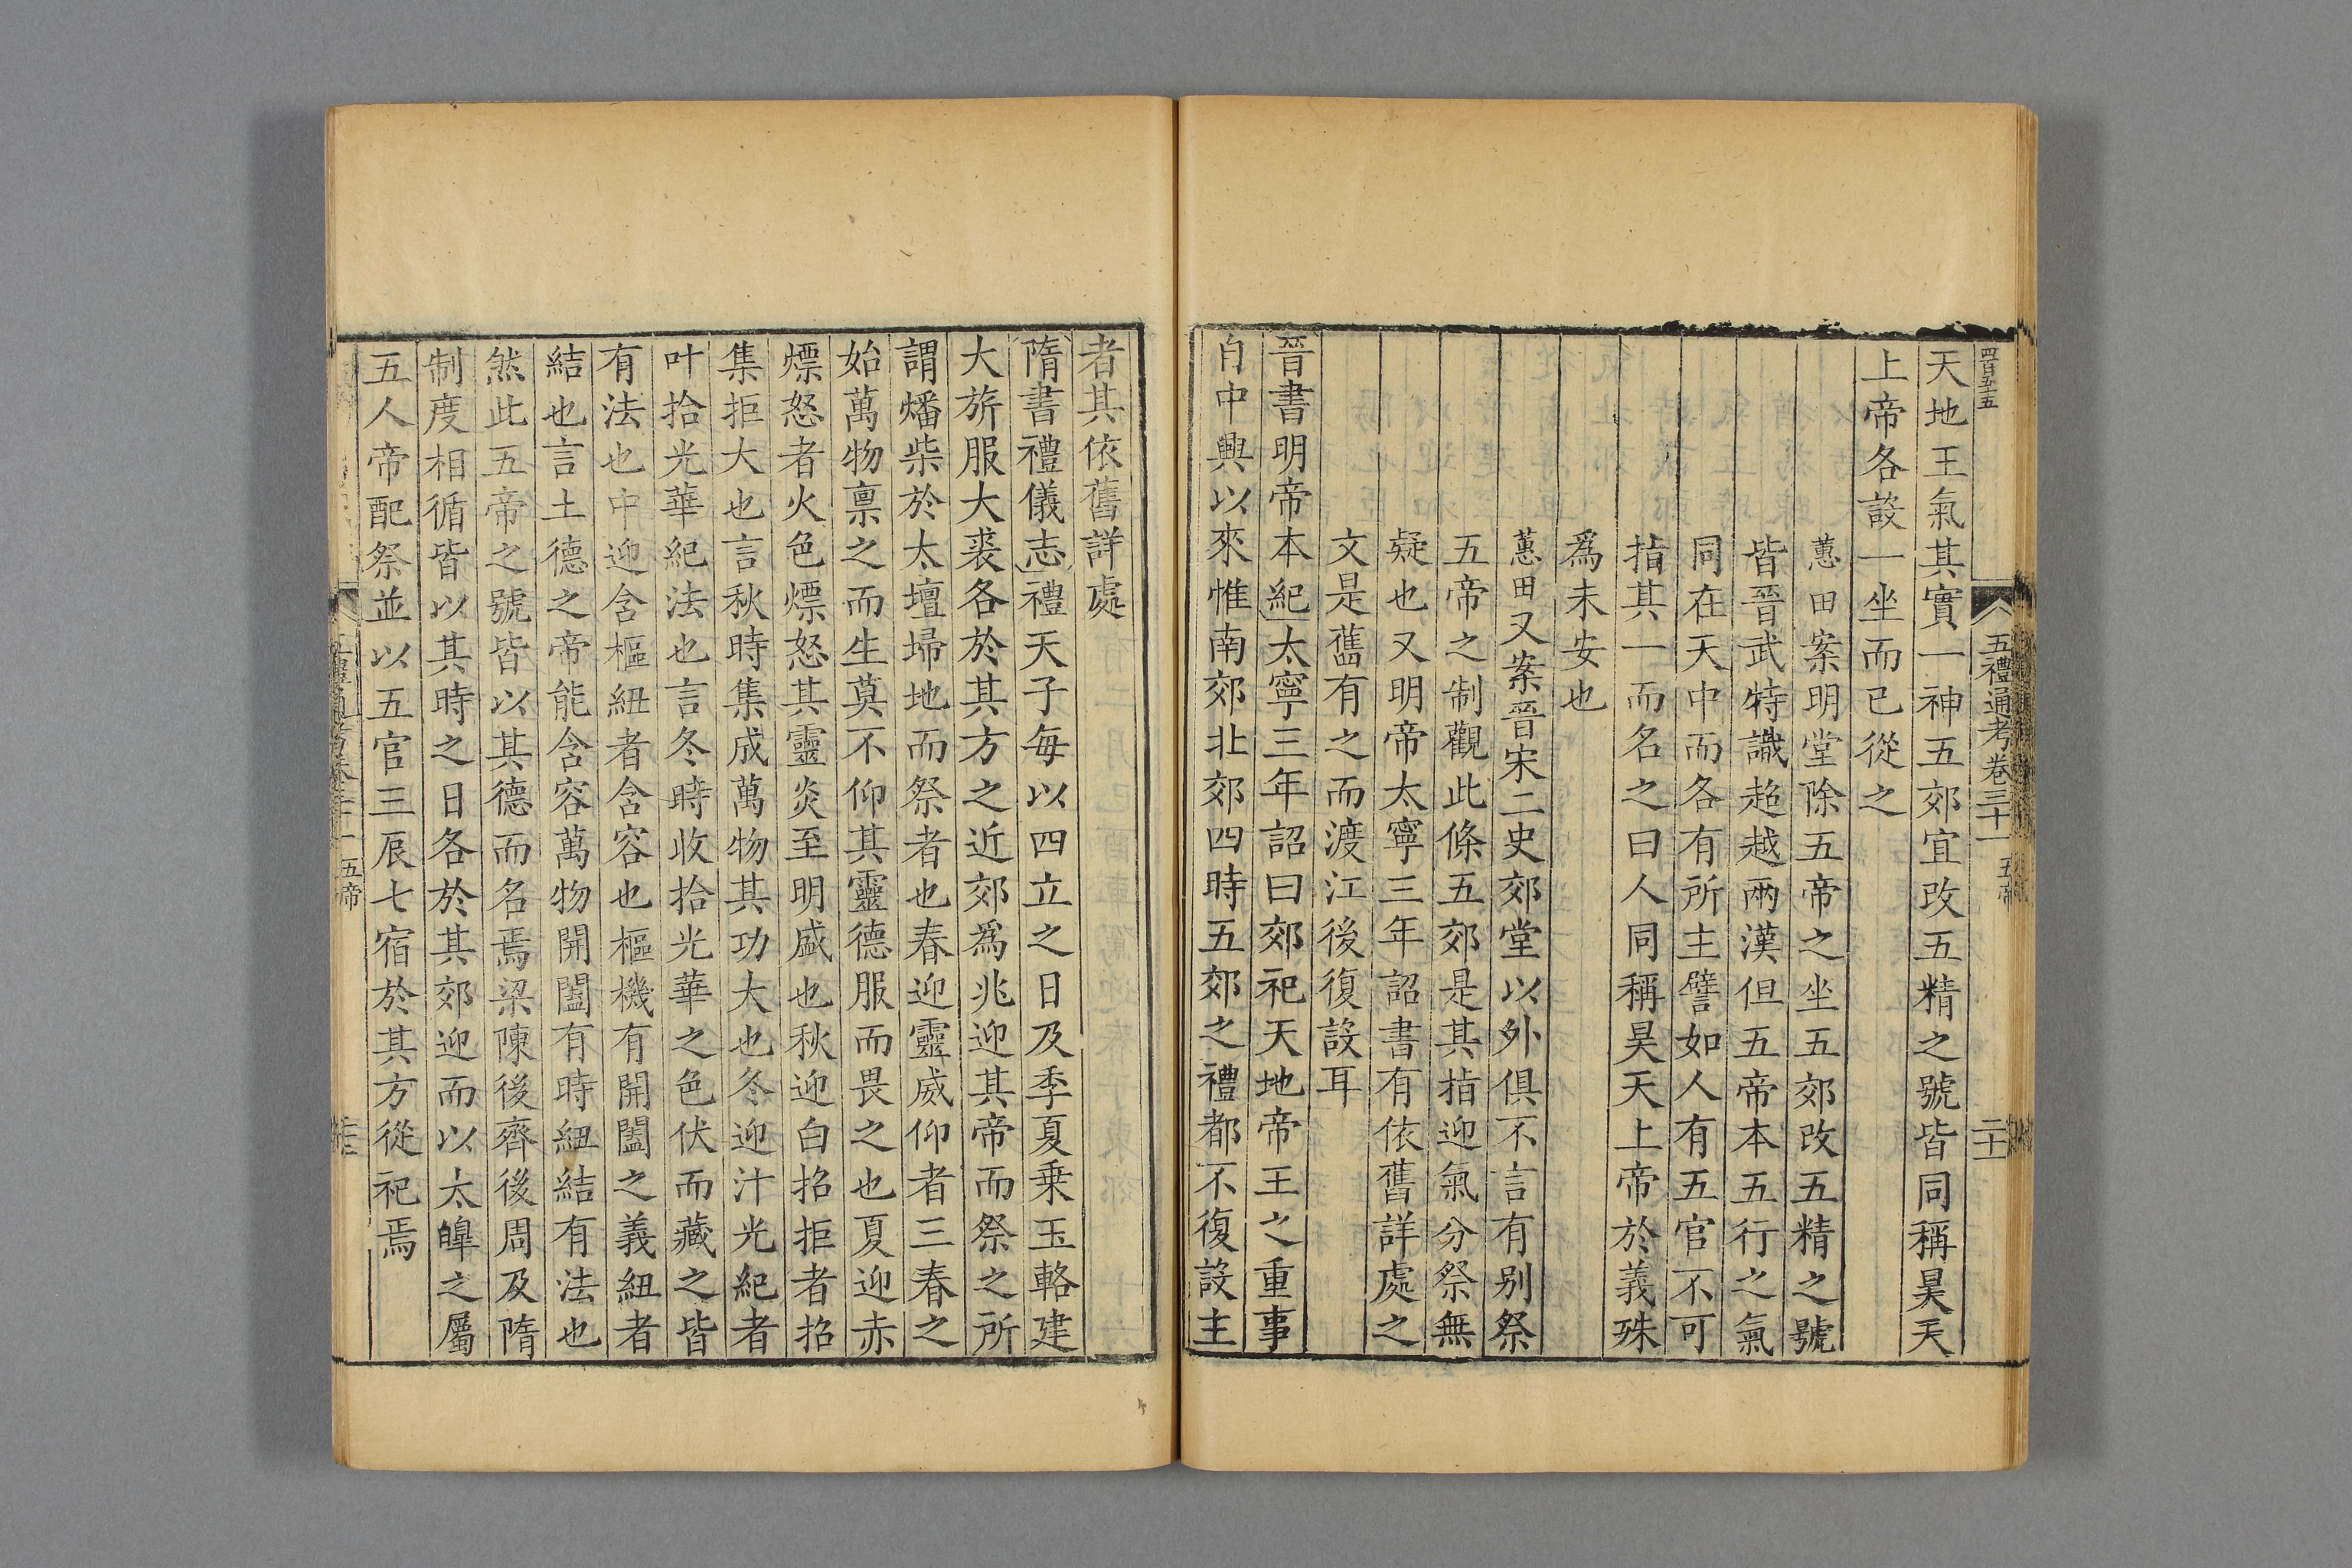 五禮通考卷三十一 五帝 二十
天地王氣其實一神五郊宜改五精之號皆同稱昊天
上帝各設一坐而已從之
蕙田案明堂除五帝之坐五郊改五精之號
皆晉武特識超越兩漢但五帝本五行之氣
同在天中而各有所主譬如人有五官不可
指其一而名之曰人同稱昊天上帝於義殊
爲未安也
蕙田又案晉宋二史郊堂以外俱不言有别祭
五帝之制觀此條五郊是其指迎氣分祭無
疑也又明帝太寧三年詔書有依舊詳處之
文是舊有之而渡江後復設耳
晉書明帝本紀太寧三年詔曰郊祀天地帝王之重事
自中興以來惟南郊北郊四時五郊之禮都不復設主
者其依舊詳處
隋書禮儀志禮天子每以四立之日及季夏乗玉輅建
大旂服大裘各於其方之近郊爲兆迎其帝而祭之所
謂燔柴於太壇埽地而祭者也春迎靈威仰者三春之
始萬物禀之而生莫不仰其靈德服而畏之也夏迎赤
熛怒者火色熛怒其靈炎至明盛也秋迎白招拒者招
集拒大也言秋時集成萬物其功大也冬迎汁光紀者
叶拾光華紀法也言冬時收拾光華之色伏而藏之皆
有法也中迎含樞紐者含容也樞機有開闔之義紐者
結也言土德之帝能含容萬物開闔有時紐結有法也
然此五帝之號皆以其德而名焉梁陳後齊後周及隋
制度相循皆以其時之日各於其郊迎而以太皡之屬
五人帝配祭並以五官三辰七宿於其方從祀焉
五帝